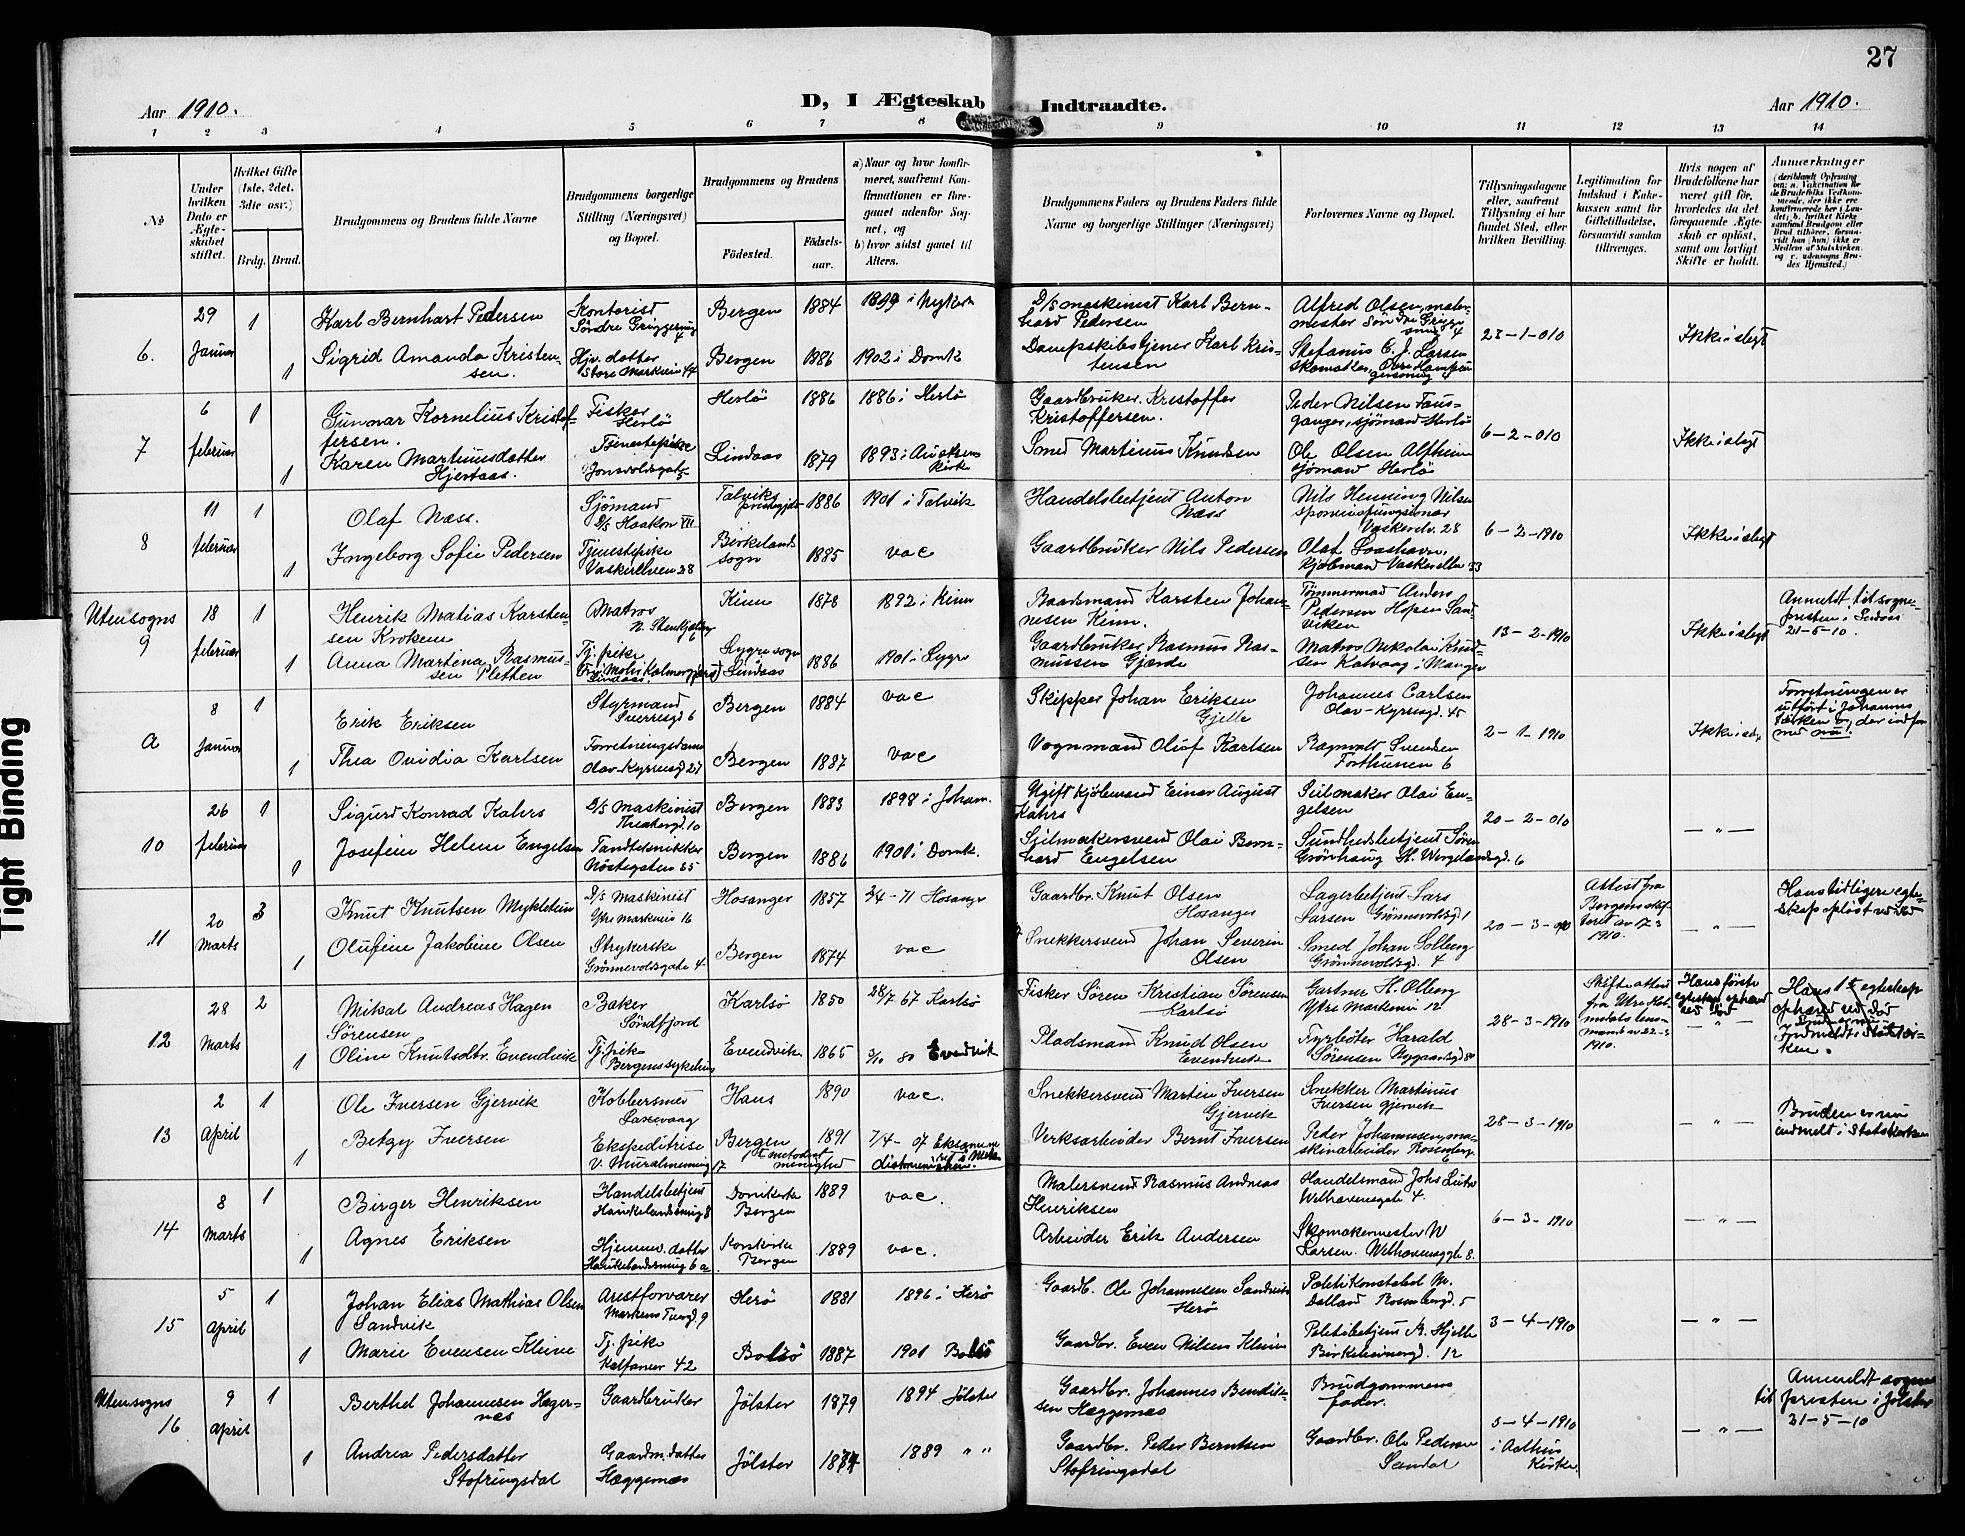 27
Aar 1910.
D, I Ægteskab Indtraadte.
Aar 1910.
1 2 3 4 5 6 7 8 9 10 11 12 13 14
No
Under hvilken Dato er Ægteskabet stiftet.
Hvilket Gifte (1ste, 2det, 3die osv.)
Brdg. Brud.
Brudgommens og Brudens fulde Navne
Brudgommens borgerlige Stilling (Næringsvei) og Bopæl.
Brudgommens og Brudens
Fødested.
Fødselsaar.
a) Naar og hvor konfirmeret, saafremt Konfirmationen er foregaaet udenfor Sognet, og
b) hvor sidst gaaet til Alters.
Brudgommens Faders og Brudens Faders fulde Navne og borgerlige Stillinger (Næringsvei)
Forlovernes Navne og Bopæl.
Tillysningsdagene eller, saafremt Tillysning ei har fundet Sted, efter hvilken Bevilling.
Legitimation for Indskud i Enkekassen samt for Giftetilladelse, forsaavidt saadan tiltrænges.
Hvis nogen af Brudefolkene har været gift før, hvorledes da det foregaaende Ægteskab er opløst, samt om lovligt Skifte er holdt.
Anmærkninger
6. 29 Januar 1
Karl Bernhart Pedersen
Kontorist
Bergen 1884 1899 i Nykirk
D/s maskinist Karl Bernhard Pedersen
Alfred Olsen, malermester
23-1-010
Ikke i slegt
1 Sigrid Amanda Kristensen.
Hjv. datter
Bergen 1886 1902 i Domk
Stefanus C. J. Larsen
7 6 februar 1
Gunnar Kornelius Kristoffersen.
Fisker
Herlö
Herlö 1886 1886 i Herlö
Gaardbruker Kristoffer Kristoffersen.
Peder Nilsen
sjömand Herlö
6-2-010
Ikke i slegt
1 Karen Martinusdatter Hjertaas.
Tjenestepike
Lindaas 1879
Smed Martinus Knudsen
Ole Olsen
sjömand Herlö
8 11 februar 1
Olaf Næss.
Sjömand
D/s Haakon VII
Talviks 1886 1901 i Talvik
Handelsbetjent Anton Næss
Nils Henning Nilsen
6-2-1910
Ikke i slegt
1 Ingeborg Sofie Pedersen
Tjenestpike
Vaskerelven 28
Birkeland sogn 1885 vac
Gaardbruker Nils Pedersen
Utensogns
9 18 februar 1
Henrik Matias Karstensen Krokem
Matros
Kinn 1878 1892 i Kinn
Baadsmand Karsten Johannesen Kinn.
Tömmermand Anders Pedersen Hopen Sandviken
13-2-1910
Ikke i slegt
Anmeldt til sognepresten i Lindaas
21-5-10.
1 Anna Martina Rasmussen Pletten
Tj. pike
Lygre sogn Lindaas 1886 1901 i Lygre
Gaardbruker Rasmus Rasmussen Gjerde
Matros Nikolai Knudsen Kalvaag i Manger
a 8 Januar 1
Erik Eriksen
Styrmand
Sverresgd 6
Bergen 1884 vac
Skipper Johan Eriksen Gjelle
Johannes Carlsen
Olav-Kyrresgd. 45
2-1-1910
Ikke i slegt
Forretningen er utfört i Johannes kirken
1 Thea Ovidia Karlsen
Forretningsdame
Olav-Kyrresgd 27
Bergen 1887 vac
Vognmand Olaf Karlsen
Ragnvald Svendsen
10 26 februar 1
Sigurd Konrad Kahrs
D/s Maskinist
Theatergd. 10
Bergen 1883 1898 i Joham.
Ugift Kjöbmand Einar August Kahrs
Seilmaker Olai Engelsen
20-2-010
— " —
1 Josefine Helene Engelsen
Tandtekniker
Nöstegaten 55
Bergen 1886 1901 i Domk.
Seilmakersvend Olai Bernhard Engelsen
Sundhedsbetjent Sören Grönhaug H. Wergelandsgd. 6
11 20 Marts 3
Knut Knutsen Mykletun
D/s Maskinist
Ytre markevei 16
Hosanger 1857 2/4-71 Hosanger
Gaardbr. Knut Olsen Hosanger
Lagerbetjent Lars Larsen Grönnevoldsgd 1
20-3-010
Attest fra Bergens skifteret av 17-3 1910.
— " —
Hans tidligere egteskap oplöst ved död
1 Olufine Jakobine Olsen
Strykerske
Grönnevoldsgate 4
Bergen 1874 vac
Snekkersvend Johan Severin Olsen
Smed Johan Solberg
Grönnevoldsgd. 4
12 28 Marts 2
Mikal Andreas Hagen Sörensen
Baker
Söndfjord
Karlsö 1850 28/7 67 Karlsö
Fisker Sören Kristian Sörensen Karlsö
Gartner H. Olberg
Ytre Markevei 12
28-3-1910
Hans förste egteskap ophævd ved död
— " —
Hans 1ste egteskap ophævd ved död
1 Oline Knutsdtr. Evendvik
Tj. pike
Bergens sykehus
Evendvik 1865 3/10 80 Evendvik
Pladsmand Knud Olsen Evendvik
Fyrböter Harald Sörensen
13 2 April 1
Ole Iversen Gjervik
Kobbersmed
Laxevaag
Haus 1890 vac.
Snekkersvend Martin Iversen Gjervik
Snekker Martinus Iversen Gjervik
28-3-1910
— " —
Bruden er nu indmeldt i Statskirken
1 Betzy Iversen
Ekspeditrise
V. Muralmenning 17
Bergen 1891 7/4-07
Verksarbeider Bernt Iversen
Peder Johannesen, maskinarbeider
14 8 Marts 1
Birger Henriksen
Handelsbetjent
Haukelandsveig 8
Domkirke Bergen 1889 vac.
Malersvend Rasmus Andreas Henriksen
Handelsmand Johs
Welhavensgate 4.
6-3-1910
— " —
1 Agnes Eriksen
Hjemmev. datter
Korskirke Bergen 1889 vac.
Arbeider Erik Andersen
Skomakermester W Larsen. Welhavensgt 8.
15 5 April 1
Johan Elias Mathias Olsen Sandvik
Arestforvarer
Herö 1881 1896 i Herö
Gaardb. Ole Johannesen Sandvik Herö
Politikonstabel M. Dalland Rosenbergd. 5
3-4-1910
— " —
1 Marie Evensen Kleive
Tj. pike
Kalfaret 42
Bolsö 1887 1901 Bolsö
Gaardbr. Even Nilsen Kleive
Politibetjent A. Hjelle
Birkebeinergd. 12
Utensogns
16 9 April 1
Berthel Johannesen Heggernæs
Gaardbruker
Jölster 1879 1894 Jölster
Gaardbr. Johannes Bendiksen Heggernæs
Brudgommens fader.
3-4-1910
i Aalhus Kirke.
— " —
Anmeldt til sognepresten i Jölster
31-5-10
1 Andrea Pedersdatter Stofringsdal
Gaardm. datter
Heggernæs
Jölster 1874 1889 " "
Gaardbr. Peder Berntsen Stofringsdal
Gaardbr. Ole Pedersen Sandal
Tight Binding